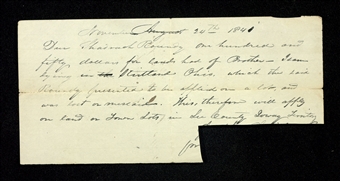 Nauvoo August 24th 1841
Due Shadrach Roundy one hundred and
fifty dollars for lands had of Brother
in Kirtland Ohio which the said
Roundy to be applied on a lot, and
was lost or mislaid. This, therefore will apply
on land or Town Lots, in Lee County, Iowa